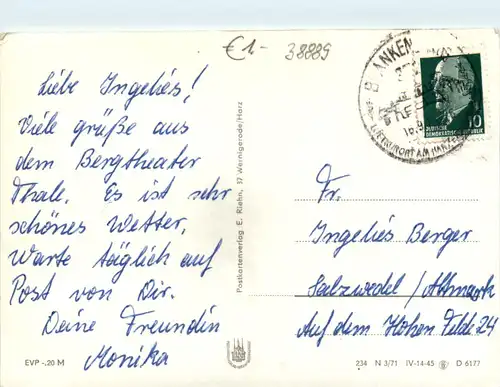 €1-
38889
BLANKEN
LUFTKURORT AM HARZ
10
DEUTSCHE
DEMOKRATISCHE REPUBLIK
Liebe Ingeliés!
Viele grüße aus
dem Bergtheater
Thale. Es ist sehr
schönes Wetter,
Warte täglich auf
Post von Dir.
Deine Freundin
Monika
Postkartenverlag E. Riehn, 37 Wernigerode/Harz
Fr.
Ingeliés Berger
Salzwedel/Altmark
Auf dem Hohen Felde 24
EVP -.20 M
234 N 3/71 IV-14-45 D 6177